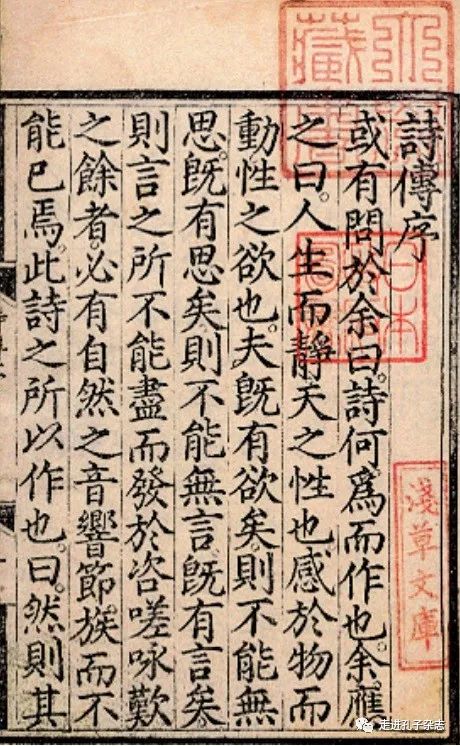 詩傳序
或有問於余曰。詩何爲而作也。余應
之曰。人生而靜天之性也感於物而
動性之欲也。夫既有欲矣。則不能無
思。既有思矣。則不能無言。既有言矣。
則言之所不能盡而發於咨嗟咏歎
之餘者。必有自然之音響節族而不
能已焉。此詩之所以作也。曰。然則其
淺草文庫
走进孔子杂志